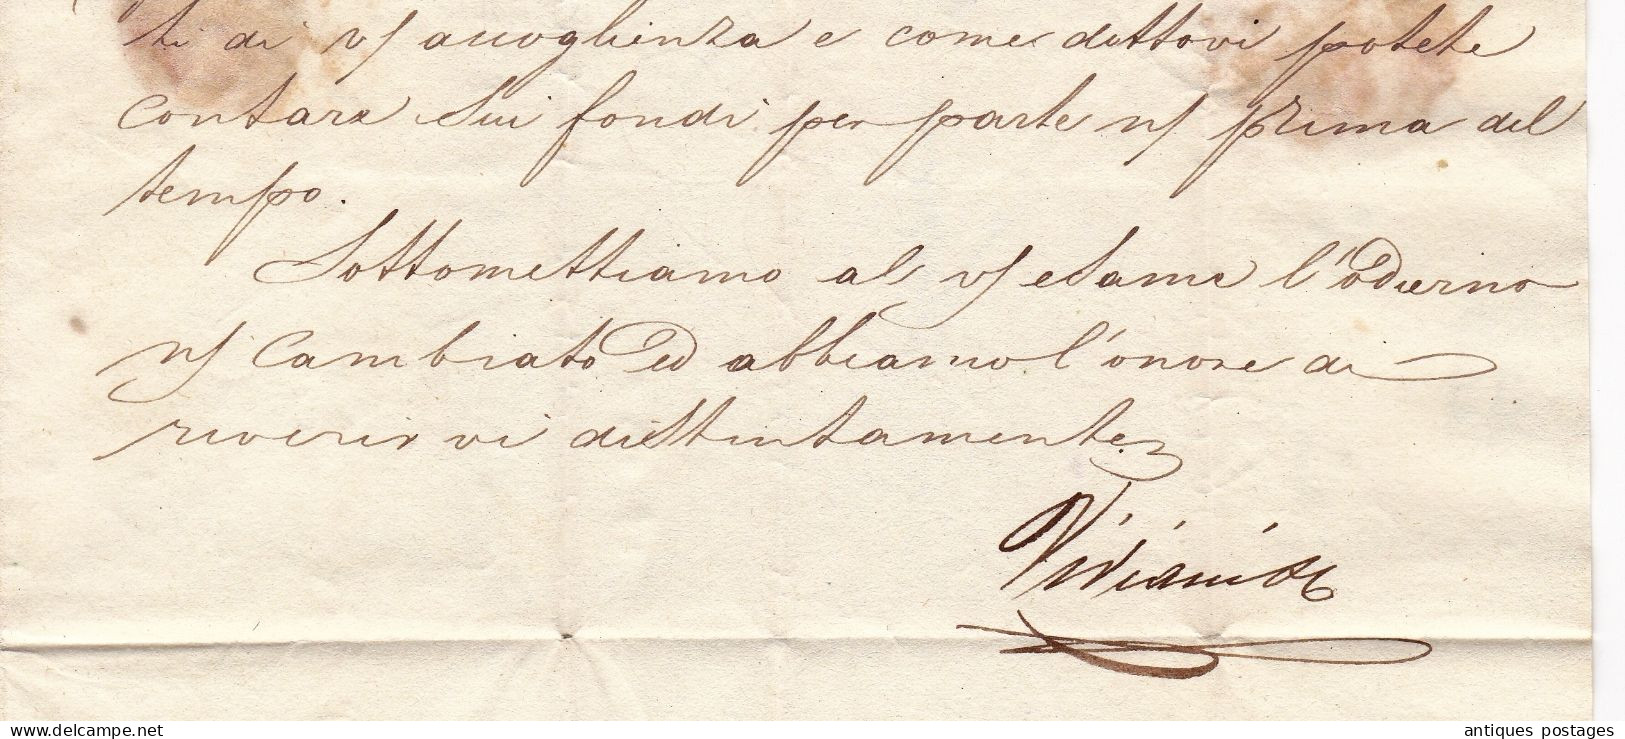 ti di v/ accoglienza e come dettovi potete
contare sui fondi per parte n/ prima del
tempo.
Sottomettiamo al v/ esame l'odierno
n/ Cambiato ed abbiamo l'onore di
riverirvi distintamente
antiques postages